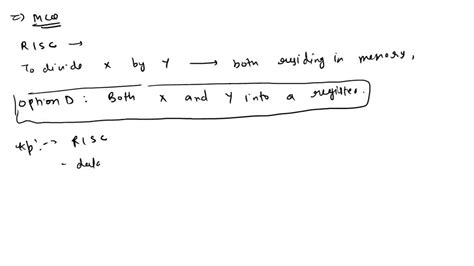 2) MCQ
RISC →
To divide X by Y → both residing in memory,
Option D: Both X and Y into a register.
Exp: → RISC
- data